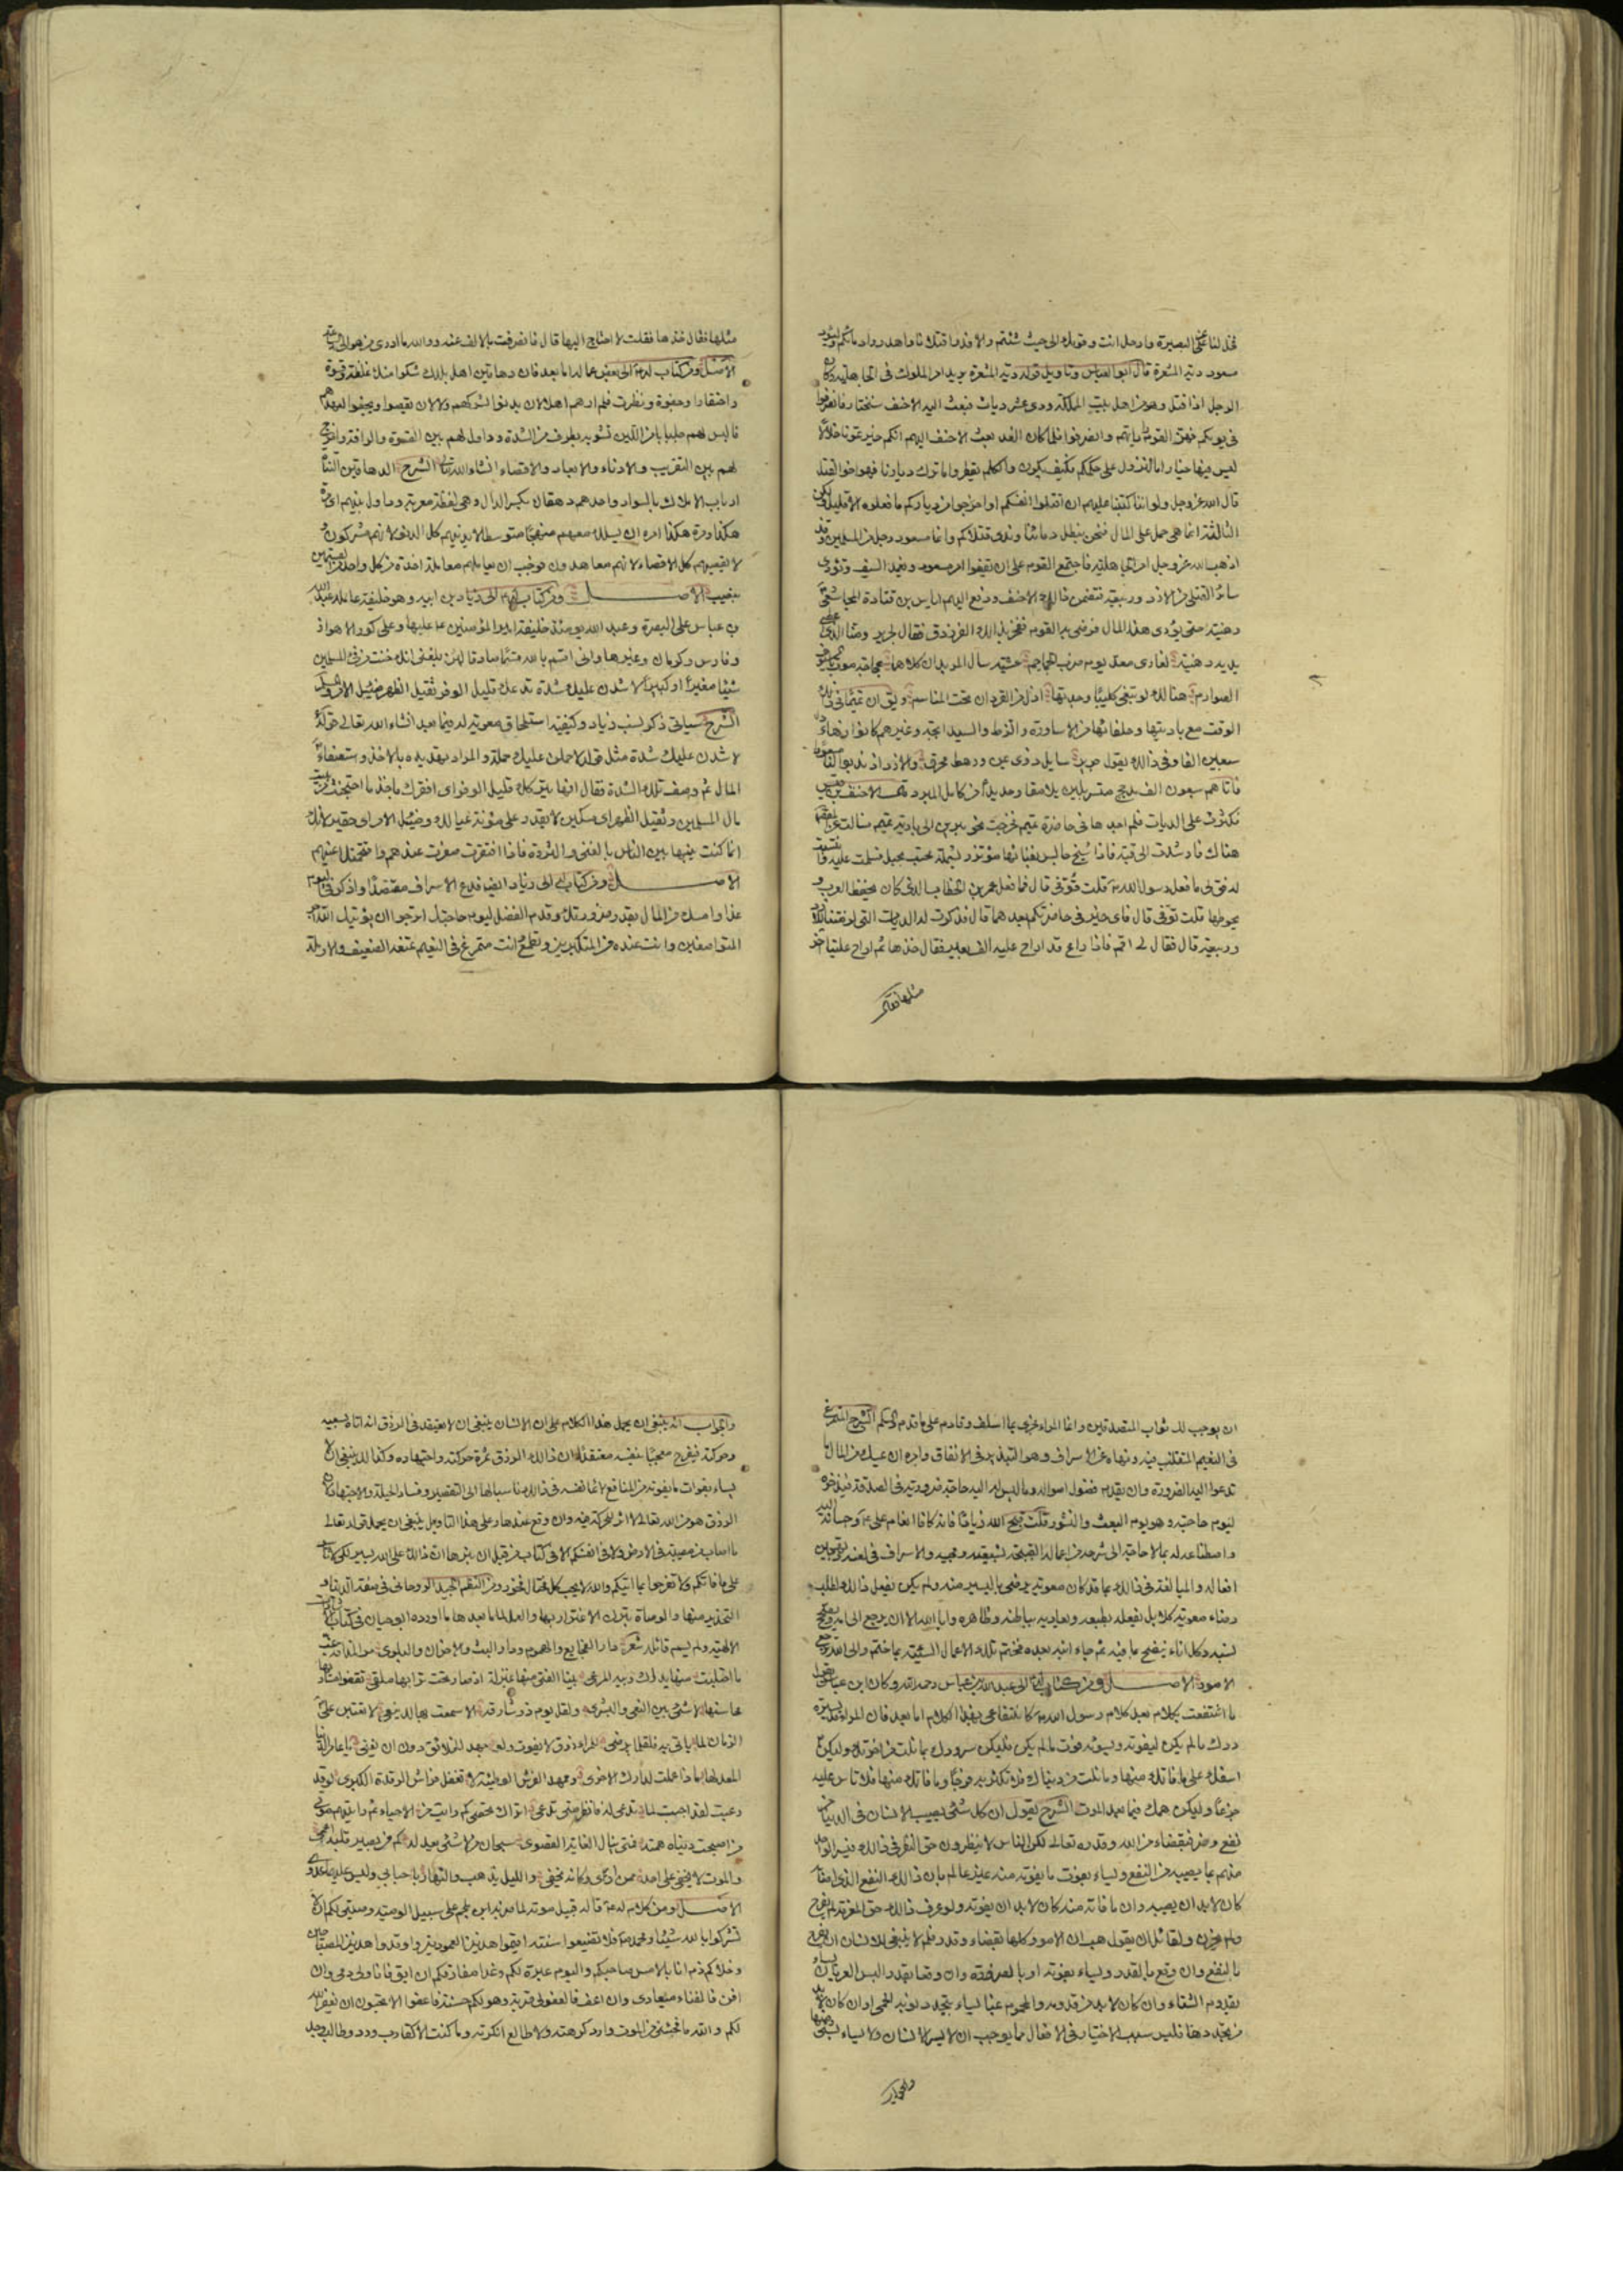 فخل لنا عن البصرة وارحل انت وقومك الى حيث شئتم والا فدوا قتلانا واهدروا دماءكم وليود
مسعود دية المشعرة قال ابو العباس وتاويل قوله دية المشعرة يريد امر الملوك في الجاهلية وكان
الرجل اذا قتل وهو من اهل بيت المملكة ودى عشر ديات فبعث اليه الاحنف سنختار فانصرفوا
في يومكم فهز القوم راياتهم وانصرفوا فلما كان الغد بعث الاحنف اليهم انكم خيرتمونا خلالا
ليس فيها خيار اما النزول على حكمكم فكيف يكون والكلم يقطر واما ترك ديارنا فهو اخو القتل
قال الله عز وجل ولو انا كتبنا عليهم ان اقتلوا انفسكم او اخرجوا من دياركم ما فعلوه الا قليل ولكن
الثالثة انما هي حمل على المال فنحن نبطل دماءنا وندى قتلاكم وانما مسعود رجل من المسلمين وقد
اذهب الله عز وجل امر الجاهلية فاجتمع القوم على ان يقفوا امر مسعود ويغمد السيف وتودى
سائر القتلى من الازد وربيعة فتضمن ذلك الاحنف ودفع اليهم اياس بن قتادة المجاشعي
رهينة حتى يؤدى هذا المال فرضى به القوم ففخر بذلك الفرزدق فقال لجرير ومنا الذى اعطى
يديه رهينة لغارى معد يوم ضرب الجماجم عشية سال المربدان كلاهما عجاجة موت بالسيوف
الصوارم هنالك لو تبغى كليبا وجدتها اذل من القردان تحت المناسم ويق ان تميما في ذلك
الوقت مع باديتها وحلفائها من الاساورة والزط والسيابجة وغيرهم كانوا زهاء
سبعين الفا وفي ذلك يقول جرير سايل ذوى يمن ورهط محرق والازد اذ ندبوا لنا مسعودا
فاتاهم سبعون الف مدجج متسربلين يلامقا وحديدا من كامل المبرد قال الاحنف بن قيس
فكثرت على الديات فلم اجدها في حاضرة تميم فخرجت نحو يبرين الى بادية تميم فسالت عن المقصود
هناك فارشدت الى قبة فاذا شيخ جالس بفنائها مؤتزر بشملة محتب بحبل فسلمت عليه وانتسبت
له فق لى ما فعل رسول الله ص قلت توفى قال فما فعل عمر بن الخطاب الذى كان يحفظ العرب و
يحوطها قلت توفى قال فاى خير في حاضرتكم بعدهما قال فذكرت له الديات التى لزمتنا للازد
وربيعة قال فقال لى اقم فاذا راع قد اراح عليه الف بعير فقال خذها ثم اراح علينا اخر
مثلها فقال
مثلها فقال خذها فقلت لا احتاج اليها قال فانصرفت بالالف عنه ووالله ما ادرى من هو الى الساعة
الاصل ومن كتاب له ع الى بعض عماله اما بعد فان دهاقين اهل بلدك شكوا منك غلظة وقسوة
واحتقارا وجفوة ونظرت فلم ارهم اهلا لان يدنوا لشركهم ولا ان يقصوا ويجفوا لعهدهم
فالبس لهم جلبابا من اللين تشوبه بطرف من الشدة وداول لهم بين القسوة والرافة وامزج
لهم بين التقريب والادناء والابعاد والاقصاء انشاء الله تعالى الشرح الدهاقين الزعماء
ارباب الاملاك بالسواد واحدهم دهقان بكسر الدال وهى لفظة معربة وداول بينهم اى مرة
هكذا ومرة هكذا امره ان يسلك معهم منهجا متوسطا لا يدنيهم كل الدنو لانهم مشركون و
لا يقصيهم كل الاقصاء لانهم معاهدون فوجب ان يعاملهم معاملة اخذة من كل واحد من القسمين
بنصيب الاصل ومن كتاب له ع الى زياد بن ابيه وهو خليفة عامله عبد الله
بن عباس على البصرة وعبد الله يومئذ خليفة امير المؤمنين ع عليها وعلى كور الاهواز
وفارس وكرمان وغيرها وانى اقسم بالله قسما صادقا لئن بلغنى انك خنت من فئ المسلمين
شيئا صغيرا او كبيرا لاشدن عليك شدة تدعك قليل الوفر ثقيل الظهر ضئيل الامر والسلم
الشرح سياتى ذكر نسب زياد وكيفية استلحاق معوية له فيما بعد انشاء الله تعالى قوله
لاشدن عليك شدة مثل قوله لاحملن عليك حملة والمراد تهديده بالاخذ واستصفاء
المال ثم وصف تلك الشدة فقال انها تتركك قليل الوفر اى افقرك باخذ ما احتجنت من بيت
مال المسلمين وثقيل الظهر اى مسكين لا تقدر على مؤنة عيالك وضئيل الامر اى حقير لانك
انما كنت نبيها بين الناس بالغنى والثروة فاذا افتقرت صغرت عندهم واقتحمتك اعينهم
الاصل ومن كتاب له ع الى زياد ايضا فدع الاسراف مقتصدا واذكر في اليوم
غدا وامسك من المال بقدر ضرورتك وقدم الفضل ليوم حاجتك اترجوا ان يؤتيك الله اجر
المتواضعين وانت عنده من المتكبرين وتطمع وانت متمرغ في النعيم تمنعه الضعيف والارملة
ان يوجب لك ثواب المتصدقين وانما المرء مجزى بما اسلف وقادم على ما قدم والسلم الشرح المتمرغ
في النعيم المتقلب فيه ونهاه عن الاسراف وهو التبذير في الانفاق وامره ان يمسك من المال ما
تدعوا اليه الضرورة وان يقدم فضول امواله وما ليس له اليه حاجة ضرورية في الصدقة فيدخره
ليوم حاجته وهو يوم البعث والنشور قلت قبح الله زيادا فانه كافا انعام على ع وحسانه اليه
واصطناعه له بما لا حاجة الى شرحه من اعماله القبيحة بشيعته ومحبيه والاسراف في لعنه وتهجين
افعاله والمبالغة في ذلك بما قد كان معوية يرضى باليسير منه ولم يكن يفعل ذلك لطلب
رضاء معوية كلا بل يفعله بطبعه ويعاديه بباطنه وظاهره وابى الله الا ان يرجع الى امه ويصحح
نسبه وكل اناء ينضح بما فيه ثم جاء ابنه بعده فختم تلك الاعمال السيئة بما ختم والى الله ترجع
الامور الاصل ومن كتاب له ع الى عبد الله بن عباس رحمه الله وكان ابن عباس يقول
ما انتفعت بكلام بعد كلام رسول الله ص كانتفاعى بهذا الكلام اما بعد فان المرء قد يسره
درك ما لم يكن ليفوته ويسوئه فوت ما لم يكن ليدركه فليكن سرورك بما نلت من اخرتك وليكن
اسفك على ما فاتك منها وما نلت من دنياك فلا تكثر به فرحا وما فاتك منها فلا تاس عليه
جزعا وليكن همك فيما بعد الموت الشرح يقول ان كل شئ يصيب الانسان في الدنيا من
نفع وضر فبقضاء من الله وقدره تعالى لكن الناس لا ينظرون حق النظر في ذلك فيسر الواحد
منهم بما يصيبه من النفع ويساء بفوت ما يفوته منه غير عالم بان ذلك النفع الذى اصابه
كان لا بد ان يصيبه وان ما فاته منه كان لا بد ان يفوته ولو عرف ذلك حق المعرفة لم يفرح
ولم يحزن ولقائل ان يقول هب ان الامور كلها بقضاء وقدر فلم لا ينبغى للانسان ان يفرح
بالنفع وان وقع بالقدر ويساء بفوته او بالضرر وان وقعا بقدر اليس العريان يساء
بقدوم الشتاء وان كان لا بد من قدومه والمحموم غبا يساء بتجدد نوبة الحمى وان كان لا بد
من تجددها فليس سبب الاختيار في الافعال مما يوجب ان لا يسر الانسان ولا يساء بشئ منها
والجواب
والجواب انه ينبغى ان يحمل هذا الكلام على ان الانسان ينبغى ان لا يعتقد في الرزق انه اتاه بسعيه
وحركته فيفرح معجبا بنفسه معتقدا ان ذلك الرزق ثمرة حركته واجتهاده وكذلك ينبغى ان لا
يساء بفوات ما يفوته من المنافع لائما نفسه في ذلك ناسبا لها الى التقصير وفساد الحيلة والاجتهاد لان
الرزق هو من الله تعالى لا اثر للحركة فيه وان وقع عندها وعلى هذا التاويل ينبغى ان يحمل قوله تعالى
ما اصاب من مصيبة في الارض ولا في انفسكم الا في كتاب من قبل ان نبراها ان ذلك على الله يسير لكى لا تاسوا
على ما فاتكم ولا تفرحوا بما اتيكم والله لا يحب كل مختال فخور ومن النظم الجيد الروحانى في صفة الدنيا و
التحذير منها والوصاة بترك الاغترار بها والعمل لما بعدها ما اورده ابو حيان في كتاب الاشارات
الالهية ولم يسم قائله شعر دار الفجايع والهموم ودار البث والاحزان والبلوى مر المذاقة غب
ما احتلبت منها يداك وبية المرعى بينا الفتى منها بمنزلة اذ صار تحت ترابها ملقى تقفو مساويها
محاسنها لا شئ بين النعى والبشرى ولقل يوم ذر شارقه الا سمعت بهالك ينعى لا تعتبن على
الزمان لما ياتى به فلقلما يرضى للمرء رزق لا يفوت ولو جهد الخلائق دون ان يفنى يا عامر الدنيا
المعد لها ماذا عملت لدارك الاخرى وممهد الفرش الوطيئة لا تغفل فراش الرقدة الكبرى لو قد
دعيت لقد اجبت لما تدعى له فانظر متى تدعى اتراك تحصى كم رايت من الاحياء ثم رايتهم موتى
من اصبحت دنياه همته فمتى ينال الغاية القصوى سبحان من لا شئ يعدله كم من بصير قلبه اعمى
والموت لا يخفى على احد ممن ارى وكانه يخفى والليل يذهب والنهار باحبابى وليس عليهما عدوى
الاصل ومن كلام له ع قاله قبيل موته لما ضربه ابن ملجم على سبيل الوصية وصيتى لكم ان لا
تشركوا بالله شيئا ومحمد ص فلا تضيعوا سنته اقيموا هذين العمودين واوقدوا هذين المصباحين
وخلاكم ذم انا بالامس صاحبكم واليوم عبرة لكم وغدا مفارقكم ان ابق فانا ولى دمى وان
افن فالفناء ميعادى وان اعف فالعفو لى قربة وهو لكم حسنة فاعفوا الا تحبون ان يغفر الله
لكم والله ما فجئنى من الموت وارد كرهته ولا طالع انكرته وما كنت الا كقارب ورد وطالب وجد